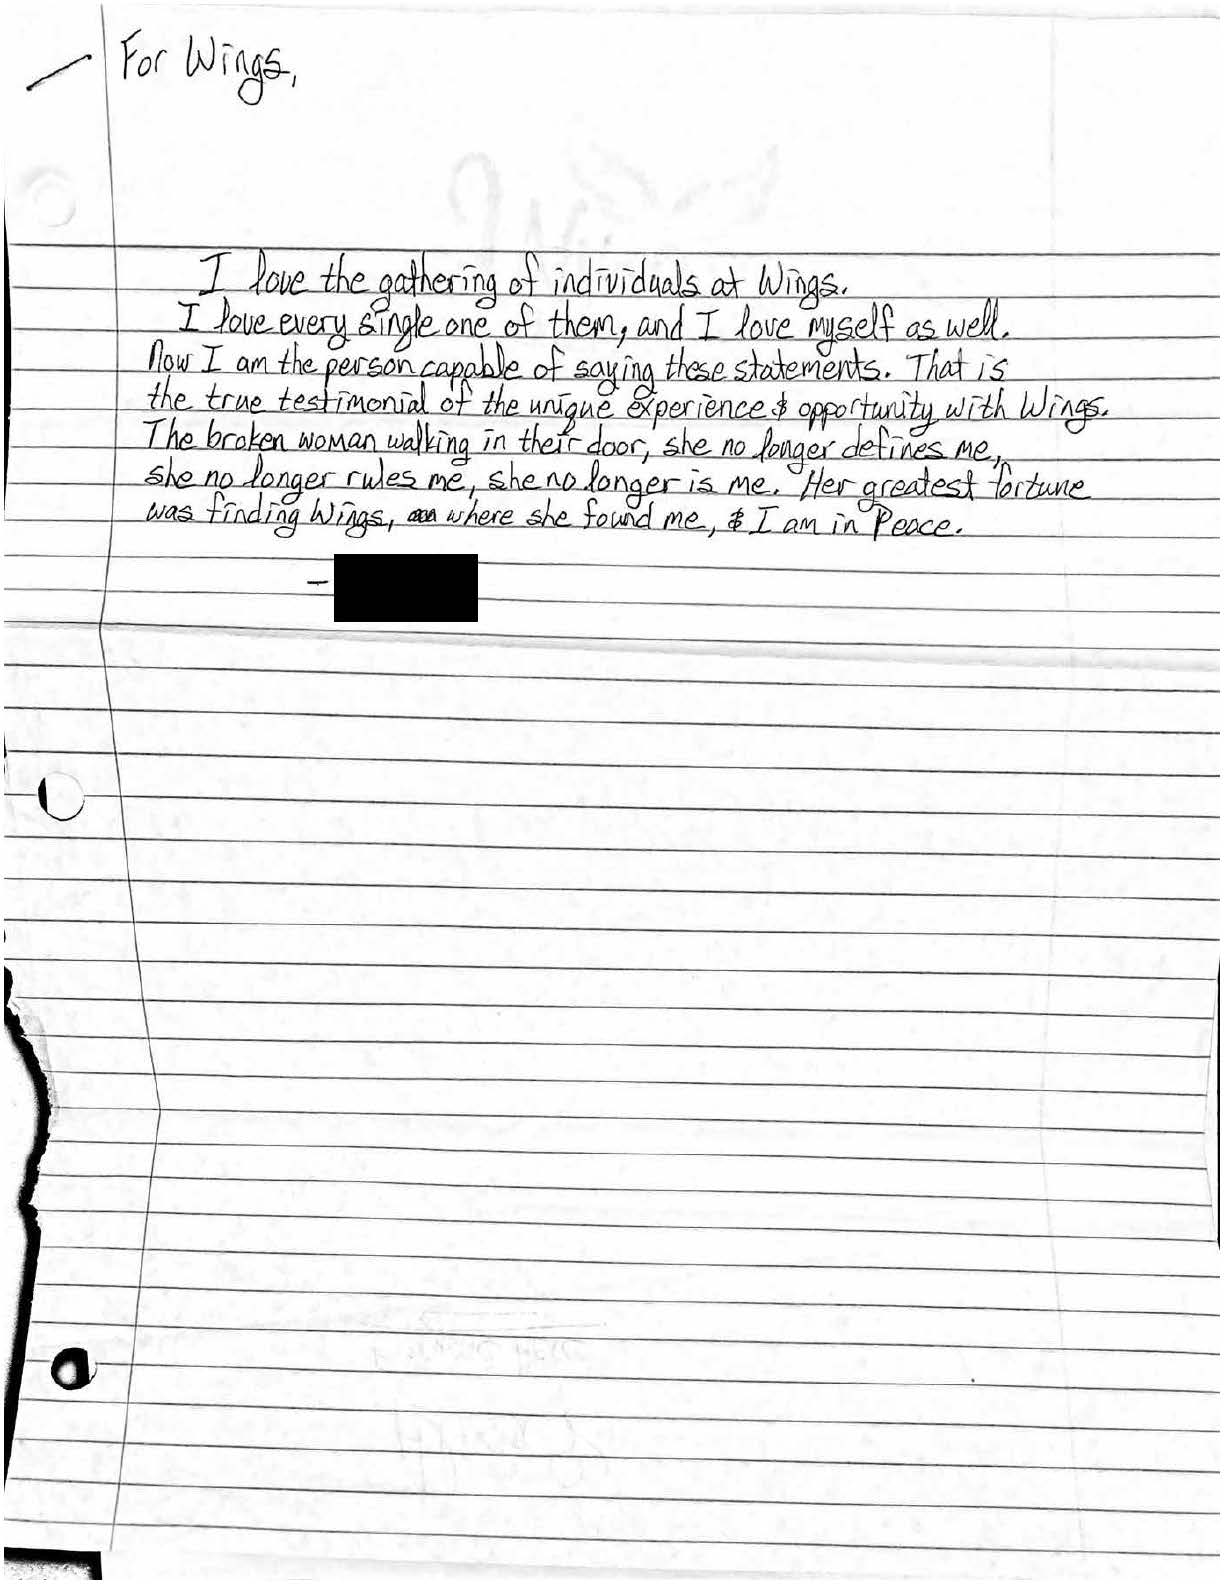 For Wings,
I love the gathering of individuals at Wings.
I love every single one of them, and I love myself as well.
Now I am the person capable of saying these statements. That is
the true testimonial of the unique experience & opportunity with Wings.
The broken woman walking in their door, she no longer defines me,
she no longer rules me, she no longer is me. Her greatest fortune
was finding Wings, where she found me, & I am in Peace.
-